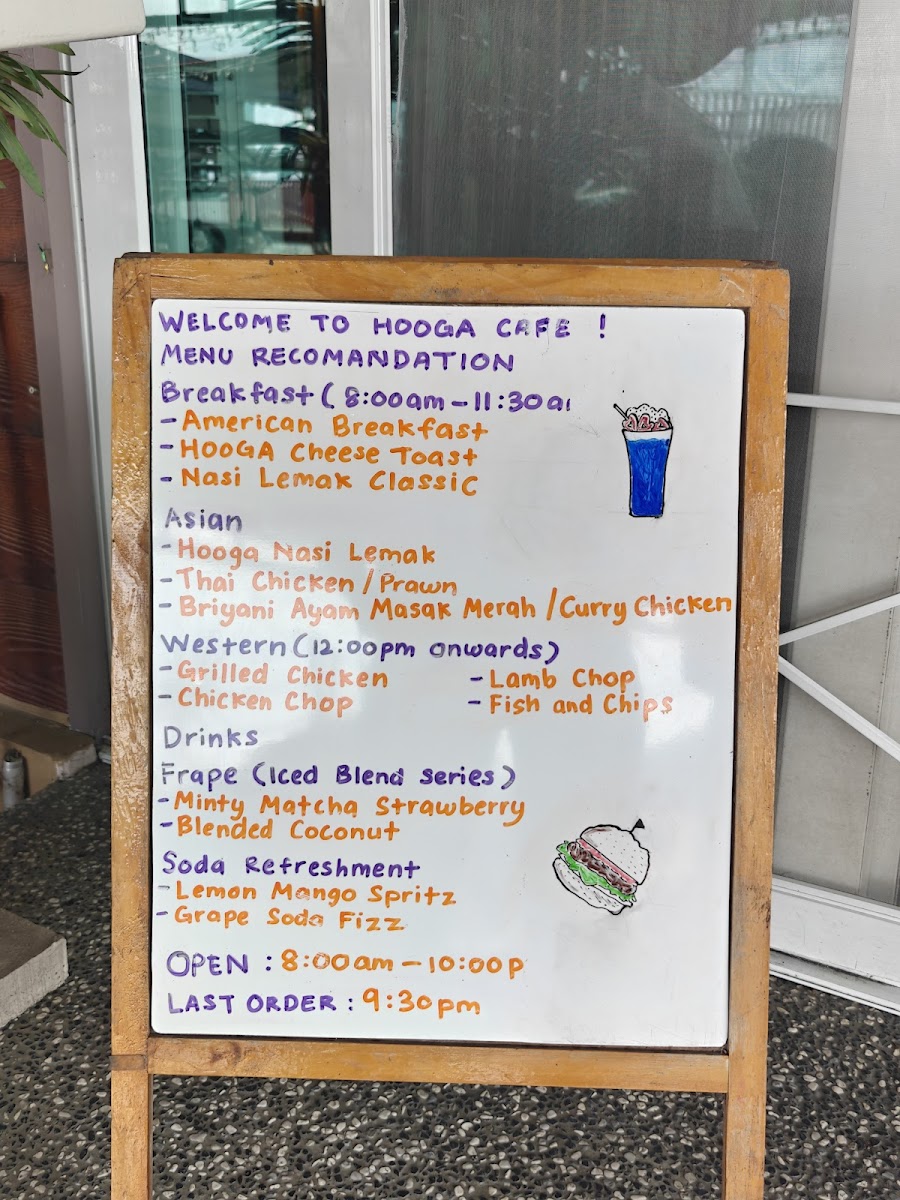 WELCOME TO HOOGA CAFE !
MENU RECOMANDATION
Breakfast ( 8:00am - 11:30a
- American Breakfast
- HOOGA Cheese Toast
- Nasi Lemak Classic
Asian
- Hooga Nasi Lemak
- Thai Chicken / Prawn
- Briyani Ayam Masak Merah / Curry Chicken
Western (12:00pm onwards)
- Grilled Chicken - Lamb Chop
- Chicken Chop - Fish and Chips
Drinks
Frape (Iced Blend series)
- Minty Matcha Strawberry
- Blended Coconut
Soda Refreshment
- Lemon Mango Spritz
- Grape Soda Fizz
OPEN : 8:00am - 10:00p
LAST ORDER : 9:30pm